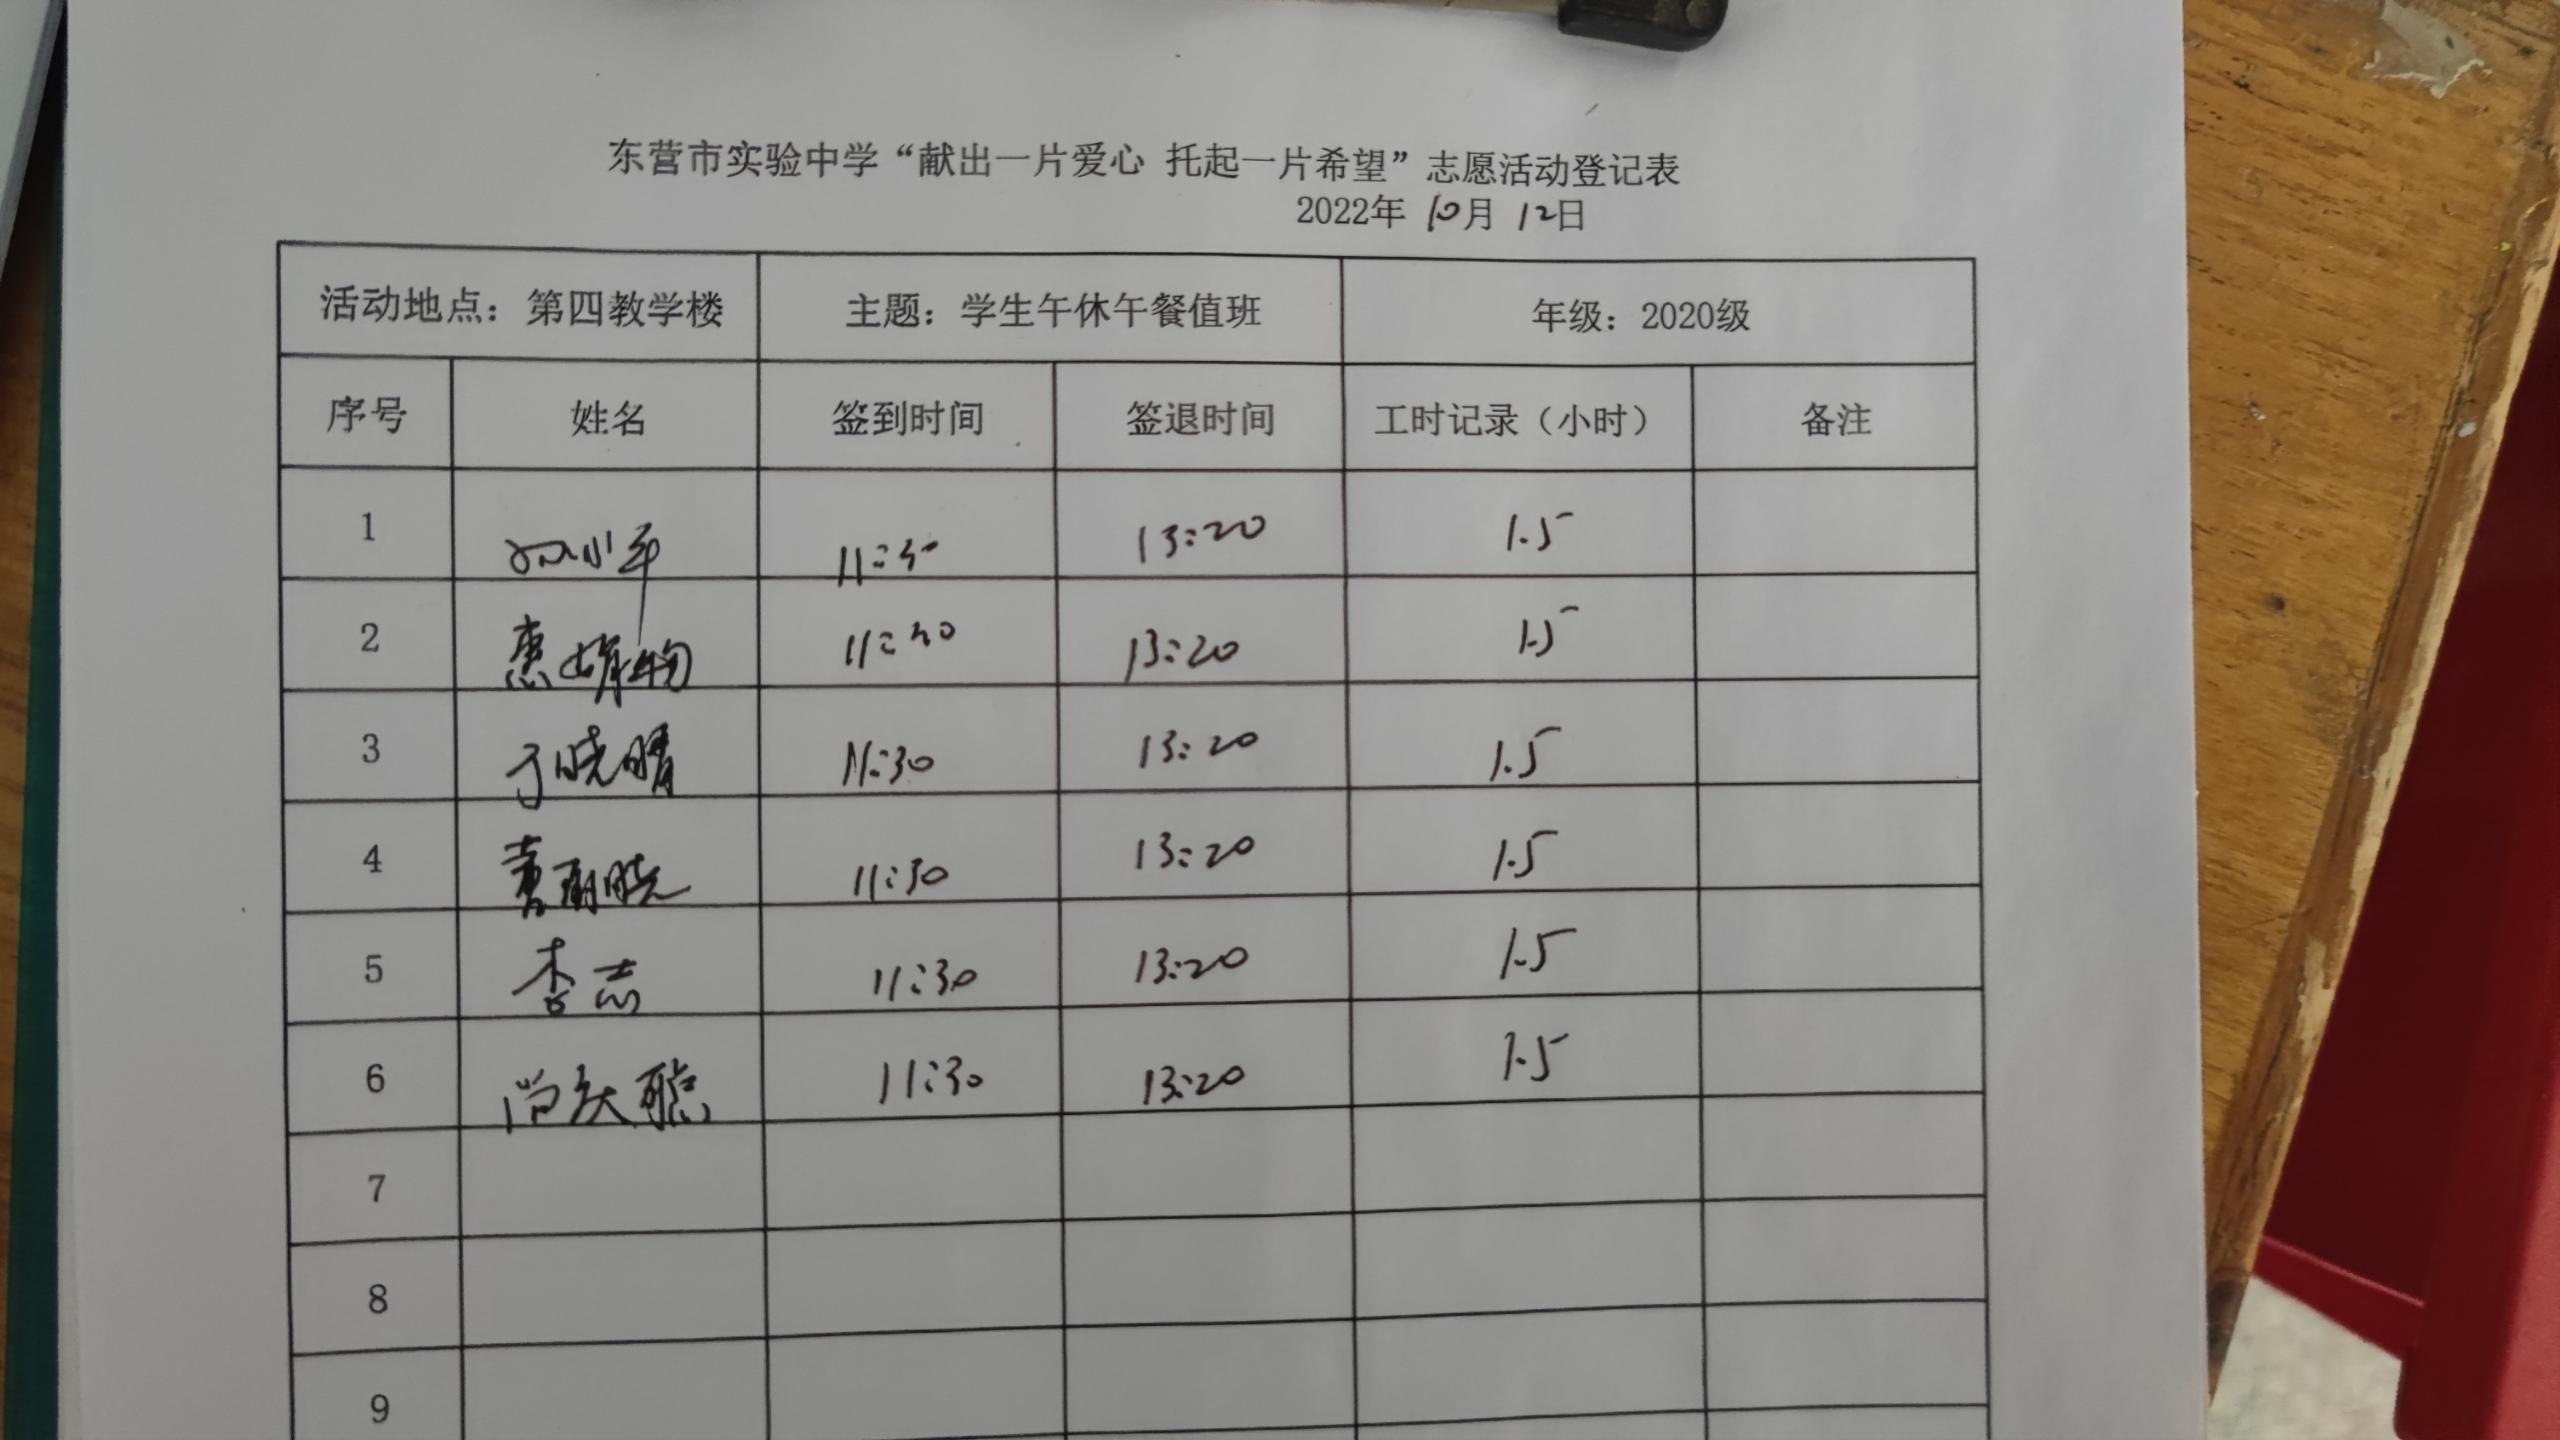 东营市实验中学“献出一片爱心 托起一片希望”志愿活动登记表
2022年 10月 12日
活动地点：第四教学楼 主题：学生午休午餐值班 年级：2020级
序号 姓名 签到时间 签退时间 工时记录（小时） 备注
1 小平 11:30 13:20 1.5
2 惠 11:30 13:20 1.5
3 于晓晴 11:30 13:20 1.5
4 11:30 13:20 1.5
5 李志 11:30 13:20 1.5
6 尚庆聪 11:30 13:20 1.5
7
8
9